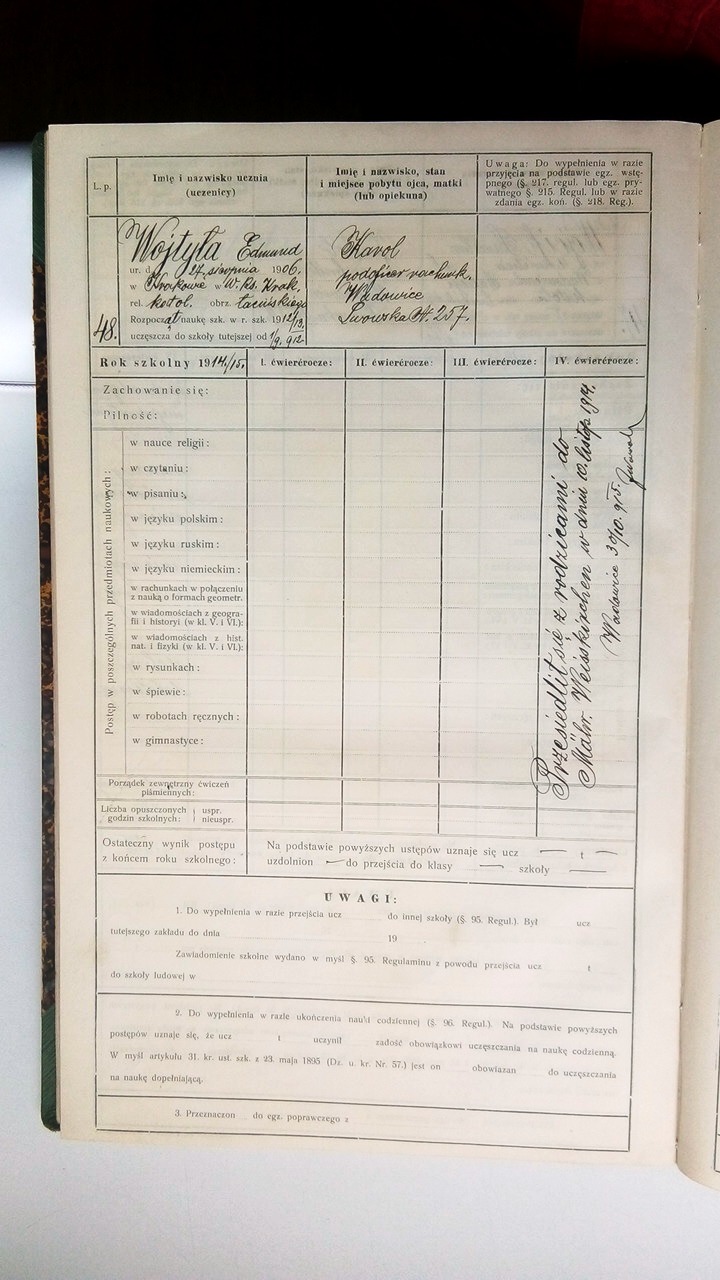 L. p.
Imię i nazwisko ucznia
(uczenicy)
Imię i nazwisko, stan
i miejsce pobytu ojca, matki
(lub opiekuna)
Uwaga: Do wypełnienia w razie
przyjęcia na podstawie egz. wstę-
pnego (§. 217. regul. lub egz. pry-
watnego §. 215. Regul. lub w razie
zdania egz. koń. (§. 218. Reg.).
48.
Wojtyła Edmund
ur. d. 27 sierpnia 1906.
w Krakowie w W. Ks. Krak.
rel. katol. obrz. łacińskiego
Rozpoczął naukę szk. w r. szk. 1912/13.
uczęszcza do szkoły tutejszej od 1/9. 912
Karol
podoficer rachunk.
Wadowice
Lwowska N. 257.
Rok szkolny 1914/15.
I. ćwierćrocze:
II. ćwierćrocze:
III. ćwierćrocze:
IV. ćwierćrocze:
Zachowanie się:
Pilność:
Postęp w poszczególnych przedmiotach naukowych:
w nauce religii:
w czytaniu:
w pisaniu:
w języku polskim:
w języku ruskim:
w języku niemieckim:
w rachunkach w połączeniu
z nauką o formach geometr.
w wiadomościach z geogra-
fii i historyi (w kl. V. i VI.):
w wiadomościach z hist.
nat. i fizyki (w kl. V. i VI.):
w rysunkach:
w śpiewie:
w robotach ręcznych:
w gimnastyce:
Przesiedlił się z rodzicami do
Mähr. Weisskirchen w dniu 10. listop. 1914.
Wadowice 30/10. 915.
Porządek zewnętrzny ćwiczeń
piśmiennych:
Liczba opuszczonych godzin szkolnych:
uspr.
nieuspr.
Ostateczny wynik postępu
z końcem roku szkolnego:
Na podstawie powyższych ustępów uznaje się ucz — t —
uzdolnion — do przejścia do klasy — szkoły —
UWAGI:
1. Do wypełnienia w razie przejścia ucz do innej szkoły (§. 95. Regul.). Był ucz
tutejszego zakładu do dnia 19
Zawiadomienie szkolne wydano w myśl §. 95. Regulaminu z powodu przejścia ucz t
do szkoły ludowej w
2. Do wypełnienia w razie ukończenia nauki codziennej (§. 96. Regul.). Na podstawie powyższych
postępów uznaje się, że ucz t uczynił zadość obowiązkowi uczęszczania na naukę codzienną.
W myśl artykułu 31. kr. ust. szk. z 23. maja 1895 (Dz. u. kr. Nr. 57.) jest on obowiązan do uczęszczania
na naukę dopełniającą.
3. Przeznaczon do egz. poprawczego z